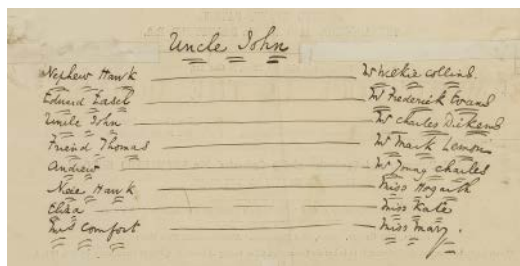 Uncle John
Nephew Hawk Mr Wilkie Collins.
Edward Easel Mr Frederick Evans
Uncle John Mr Charles Dickens
Friend Thomas Mr Mark Lemon
Andrew Mr Young Charles
Niece Hawk Miss Hogarth
Eliza Miss Kate
Mrs Comfort Miss Mary.